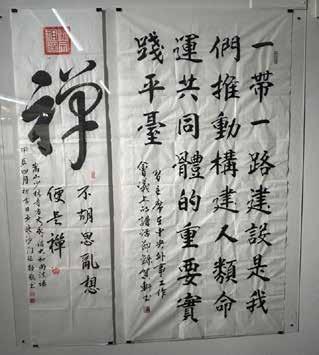 一帶一路建設是我
們推動構建人類命
運共同體的重要實
踐平臺
習主席在中央外事工作
會議上的講話節錄
禪
不胡思亂想
便是禪
嵩山少林
甲辰四月初